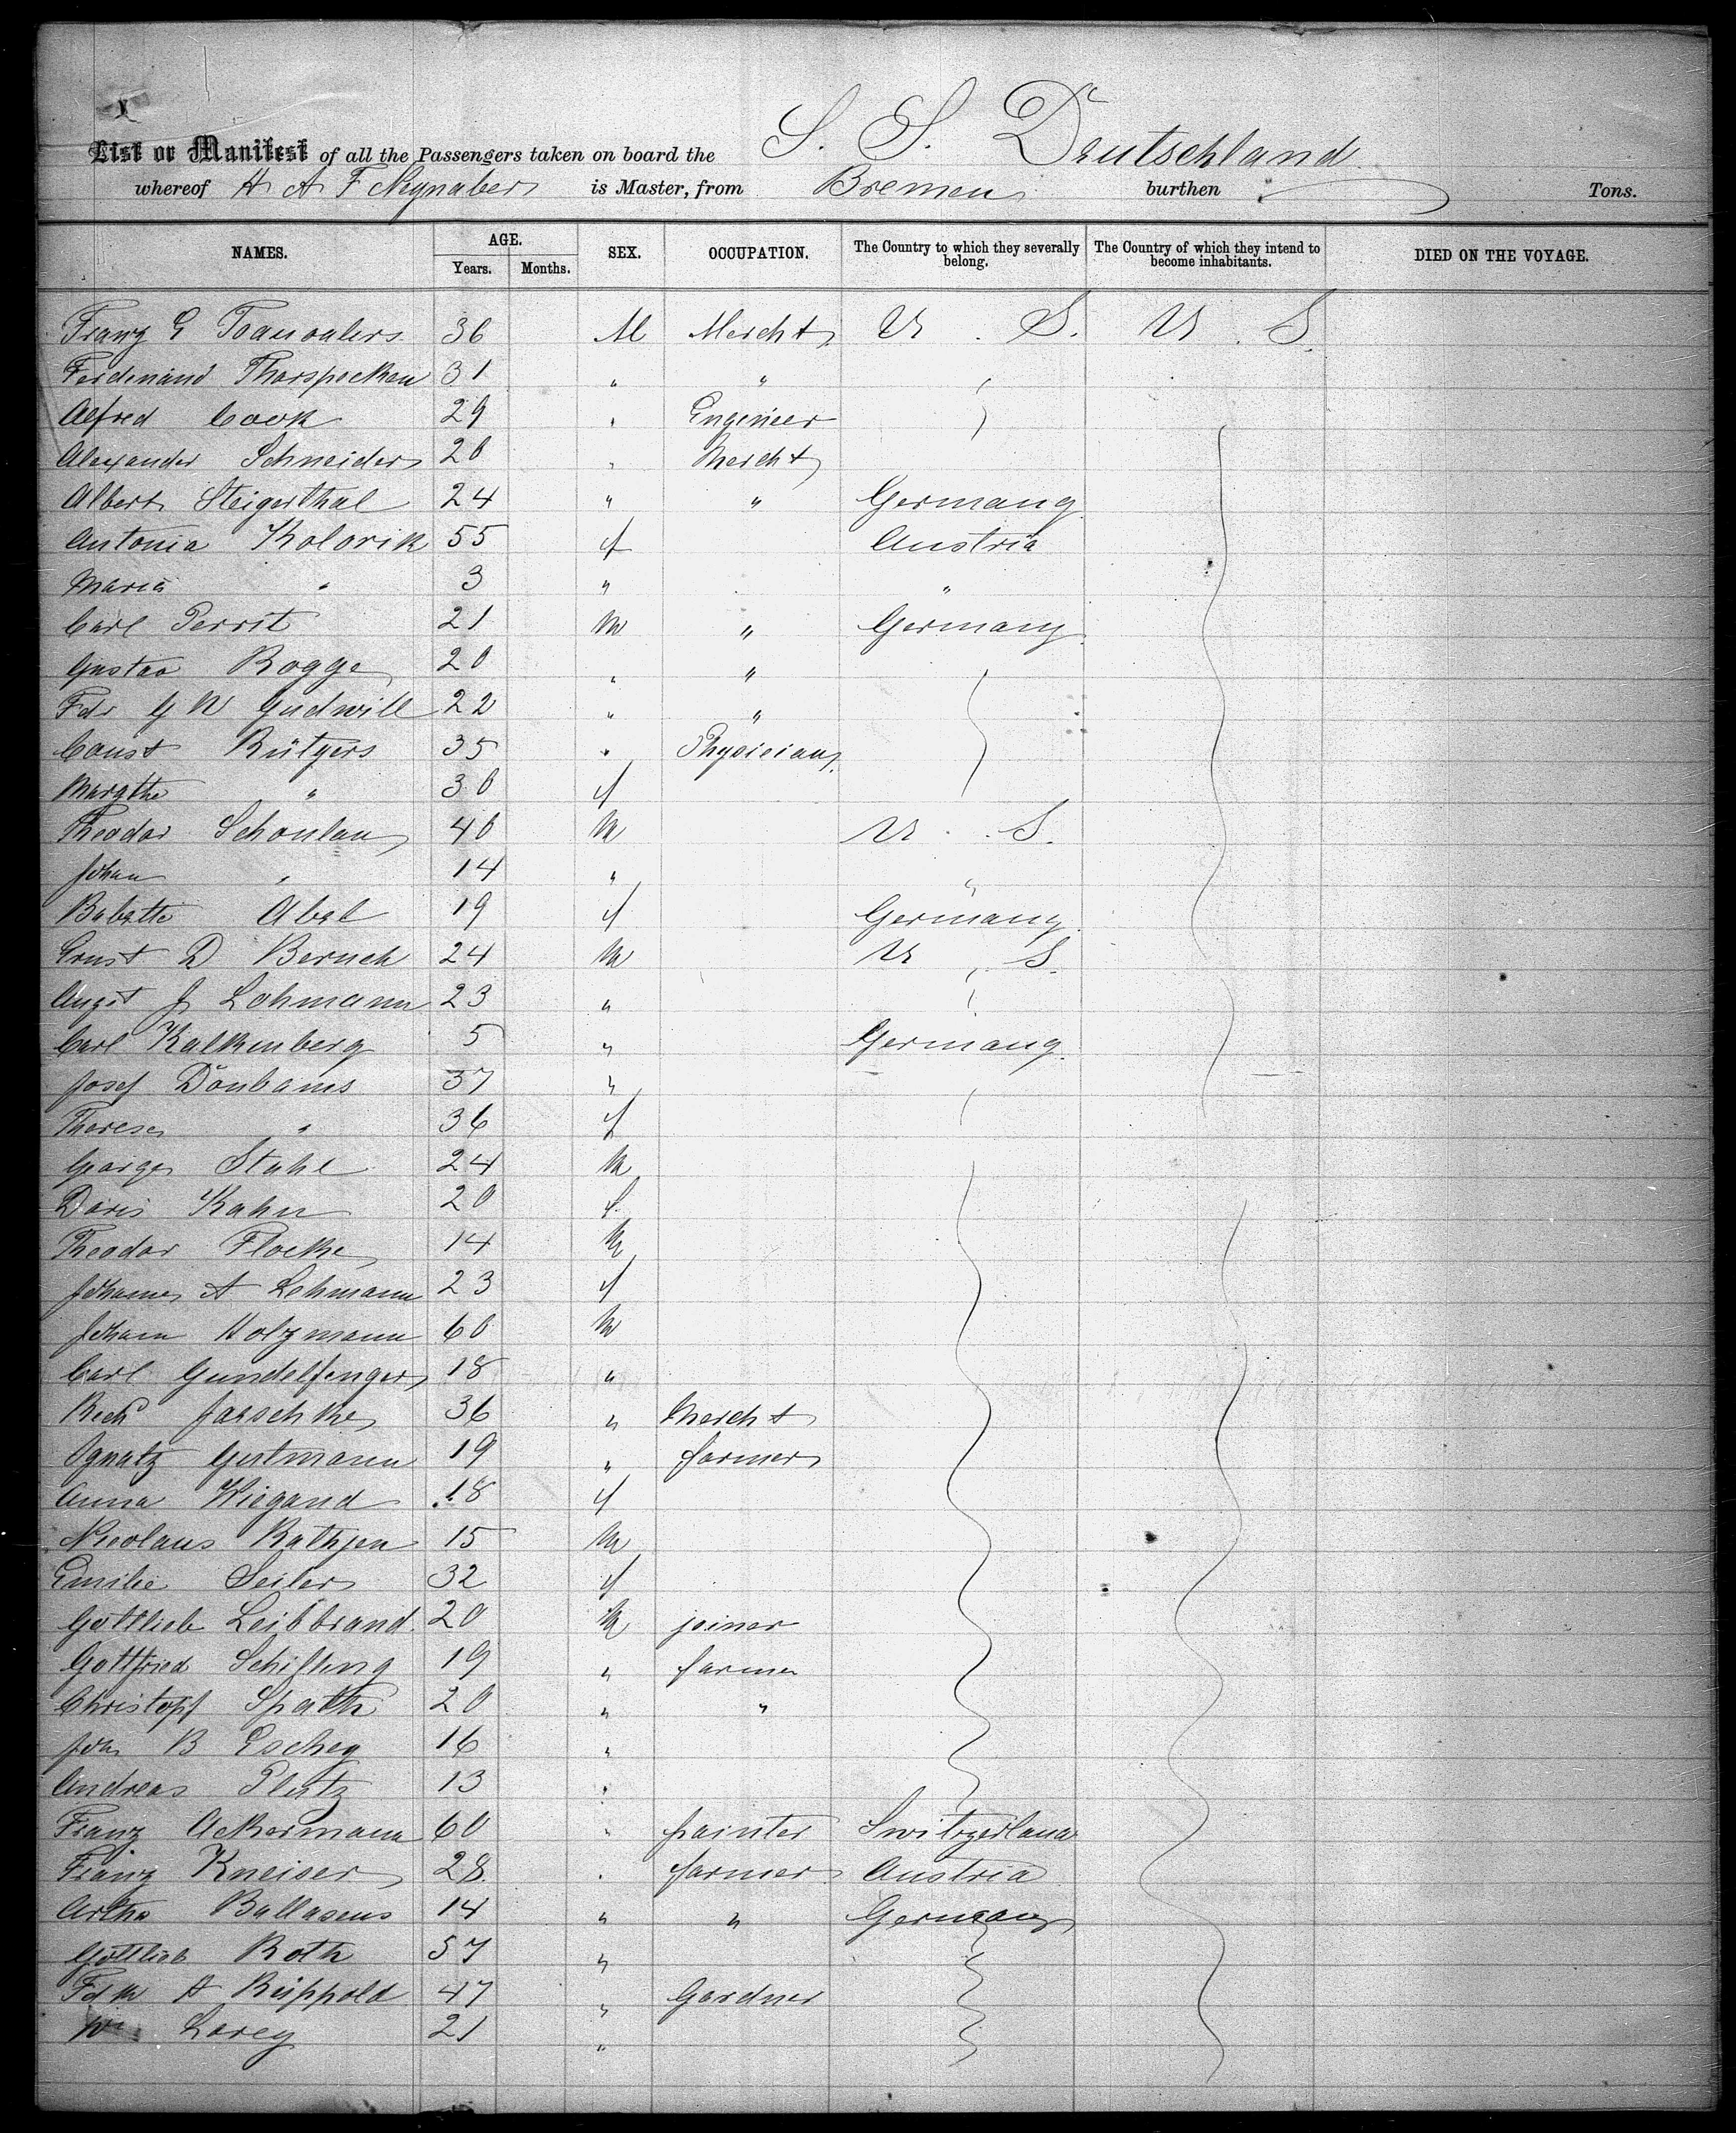 List or Manifest of all the Passengers taken on board the S. S. Deutschland
whereof H A F Neynaber is Master, from Bremen burthen Tons.
NAMES. AGE. Years. Months. SEX. OCCUPATION. The Country to which they severally belong. The Country of which they intend to become inhabitants. DIED ON THE VOYAGE.
Franz G 36 M Mercht U. S. U. S.
Ferdinand Thorspecken 31 " "
Alfred Cook 29 " Engineer
Alexander Schneider 20 " Mercht
Albert Steigerthal 24 " " Germany
Antonia Kolovik 55 f Austria
Maria " 3 " "
Carl Perrit 21 M " Germany
Gustav Rogge 20 " "
Fdr G W Gudwill 22 " "
Const Rütgers 35 " Physician
Margthe " 30 f
Theodor Schonlau 40 M U. S.
Johan " 14 " "
Babette Abel 19 f Germany
Ernst D Beruch 24 M U S.
Augst J Lohmann 23 "
Carl Kalkenberg 5 " Germany
Josef 37 "
Therese " 36 f
George Stuhl 24 M
Doris Kahn 20 f
Theodor Flocke 14 M
Johannes A Lehmann 23 f
Johann Holzmann 60 M
Carl Gundelfinger 18 "
Rich Jaeschke 36 " Mercht
Ignatz Gutmann 19 " farmer
Anna Wiegand 18 f
Nicolaus Rathjen 15 M
Emilie Seiler 32 f
Gottlieb Leibbrand 20 M joiner
Gottfried Schilling 19 " farmer
Christopf Spath 20 " "
Joh B Eschey 16 "
Andreas Plutz 13 "
Franz Ackermann 60 " painter Switzerland
Franz Kneiser 28 " farmer Austria
Arthr Ballaseus 14 " " Germany
Gottlieb Roth 57 "
Fdk A Rüppold 47 " Gardner
Wm Lorey 21 "